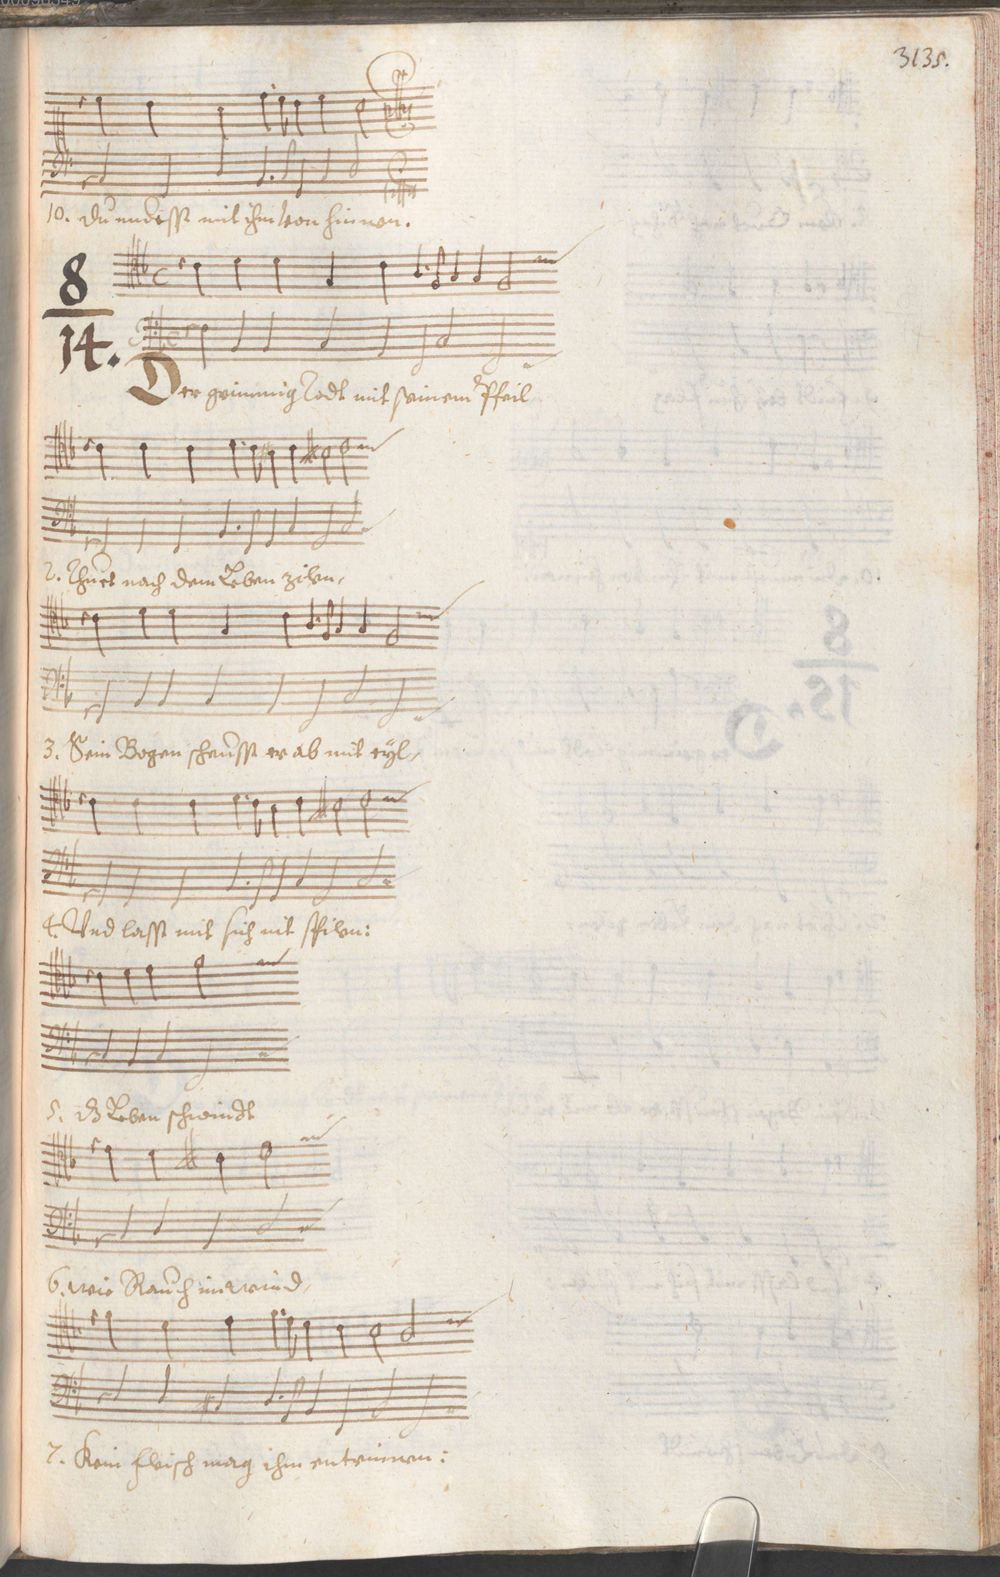 3135.
10. du muesst mit ihm von hinnen.
8
14.
Der grimmig Todt mit seinem Pfeil
2. Thuet nach dem Leben zilen,
3. Sein Bogen scheusst er ab mit eyl,
4. Und lasst mit sich nit spilen:
5. ds Leben schwindt
6. wie Rauch im wind,
7. Kein fleisch mag ihm entrinnen: